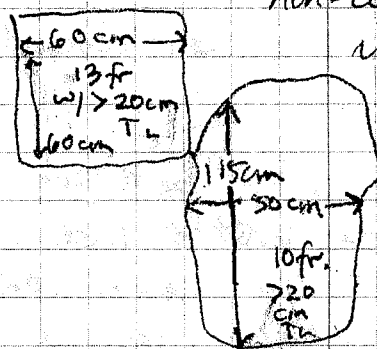 60cm
13 fr
w/ > 20cm
TL
60cm
115cm
50cm
10fr.
>20
cm
TL